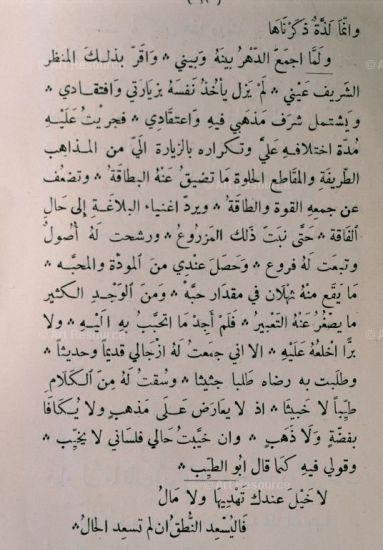 وانّما لذّةٌ ذكرناها
ولَمّا اجمعَ الدّهرُ بينهُ وبيني * واقرّ بذلك المنظر
الشريف عيني * لم يزل يأخذُ نفسَهُ بزيارتي وافتقادي *
ويشتمل شرَف مذهبي فيهِ واعتقادي * فجريتُ عليهِ
مُدة اختلافهِ عليَّ وتكرارهِ بالزيارة اليّ من المذاهب
الظريفةِ والمقاطع الحلوةِ ما تضيقُ عنهُ البطاقةُ * وتضعُف
عن جمعهِ القوة والطاقةُ * ويردّ اغنياء البلاغةِ إلى حال
الفاقة * حتَّى نبتَ ذلك المزروعُ * ورشحت لهُ أُصولٌ
وتبعَت لهُ فروع * وحَصَل عندي من المودّة والمحبّه *
ما يقَع منهُ ثهلان في مقدار حبّه * ومنَ الوَجد الكثير
ما يصغُر عنهُ التعبيرُ * فلم أجِدْ ما اتحبّب بهِ اليهِ * ولا
برًّا اخلعهُ عليهِ * الا اني جمعتُ لهُ ازجالي قديمًا وحديثا *
وطلبت بهِ رضاه طلبا حثيثا * وسُقت لهُ مِنَ الكلام
طيّبًا لا خبيثًا * اذ لا يعارَض عَلَى مذهب ولا يُكافا
بفضّةٍ ولا ذَهبٍ * وان خيّبتُ حالي فلساني لا يخيّب *
وقولي فيهِ كما قال ابو الطيّب *
لا خيلَ عندك تهديها ولا مالُ
فاليُسعِد النُّطقُ ان لم تسعد الحالُ *
© Art Resource